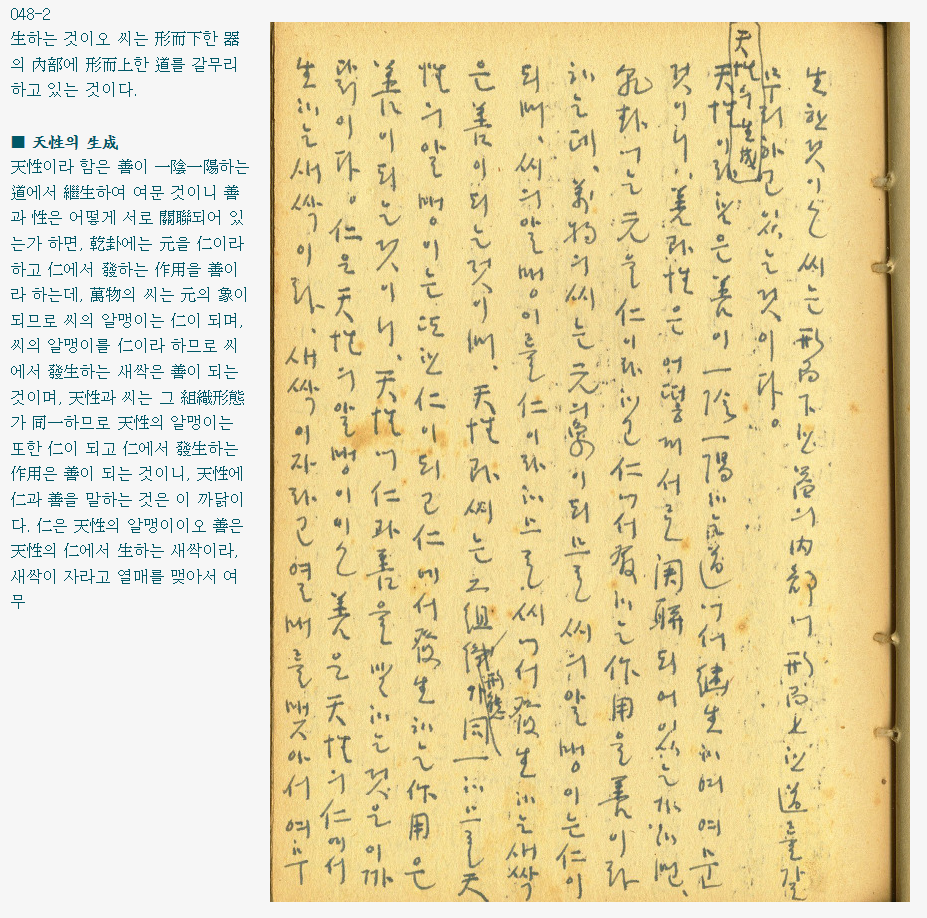 048-2
生하는 것이오 씨는 形而下한 器
의 內部에 形而上한 道를 갈무리
하고 있는 것이다.
■ 天性의 生成
天性이라 함은 善이 一陰一陽하는
道에서 繼生하여 여문 것이니 善
과 性은 어떻게 서로 關聯되어 있
는가 하면, 乾卦에는 元을 仁이라
하고 仁에서 發하는 作用을 善이
라 하는데, 萬物의 씨는 元의 象이
되므로 씨의 알맹이는 仁이 되며,
씨의 알맹이를 仁이라 하므로 씨
에서 發生하는 새싹은 善이 되는
것이며, 天性과 씨는 그 組織形態
가 同一하므로 天性의 알맹이는
또한 仁이 되고 仁에서 發生하는
作用은 善이 되는 것이니, 天性에
仁과 善을 말하는 것은 이 까닭이
다. 仁은 天性의 알맹이이오 善은
天性의 仁에서 生하는 새싹이라,
새싹이 자라고 열매를 맺아서 여
무
生한것이오 씨는 形而下한 器의 內部에 形而上한 道를 갈
무리하고 있는것이다.
天性의 生成
天性이라함은 善이 一陰一陽하는道에서 繼生하여 여문
것이니, 善과性은 어떻게 서로 関聯되어있는가하면,
乾卦에는 元을 仁이라하고 仁에서 發하는 作用을 善이라
하는데, 萬物의 씨는 元의象이되므로 씨의알맹이는仁이
되며, 씨의알맹이를 仁이라하므로 씨에서 發生하는 새싹
은 善이되는것이며, 天性과씨는 그 組織形態가 同一하므로 天
性의 알맹이는 또한 仁이되고 仁에서 發生하는 作用은
善이되는것이니, 天性에 仁과善을 말하는것은 이까
닭이다. 仁은 天性의 알맹이이오 善은 天性의 仁에서
生하는 새싹이라, 새싹이자라고 열매를맺아서 여무